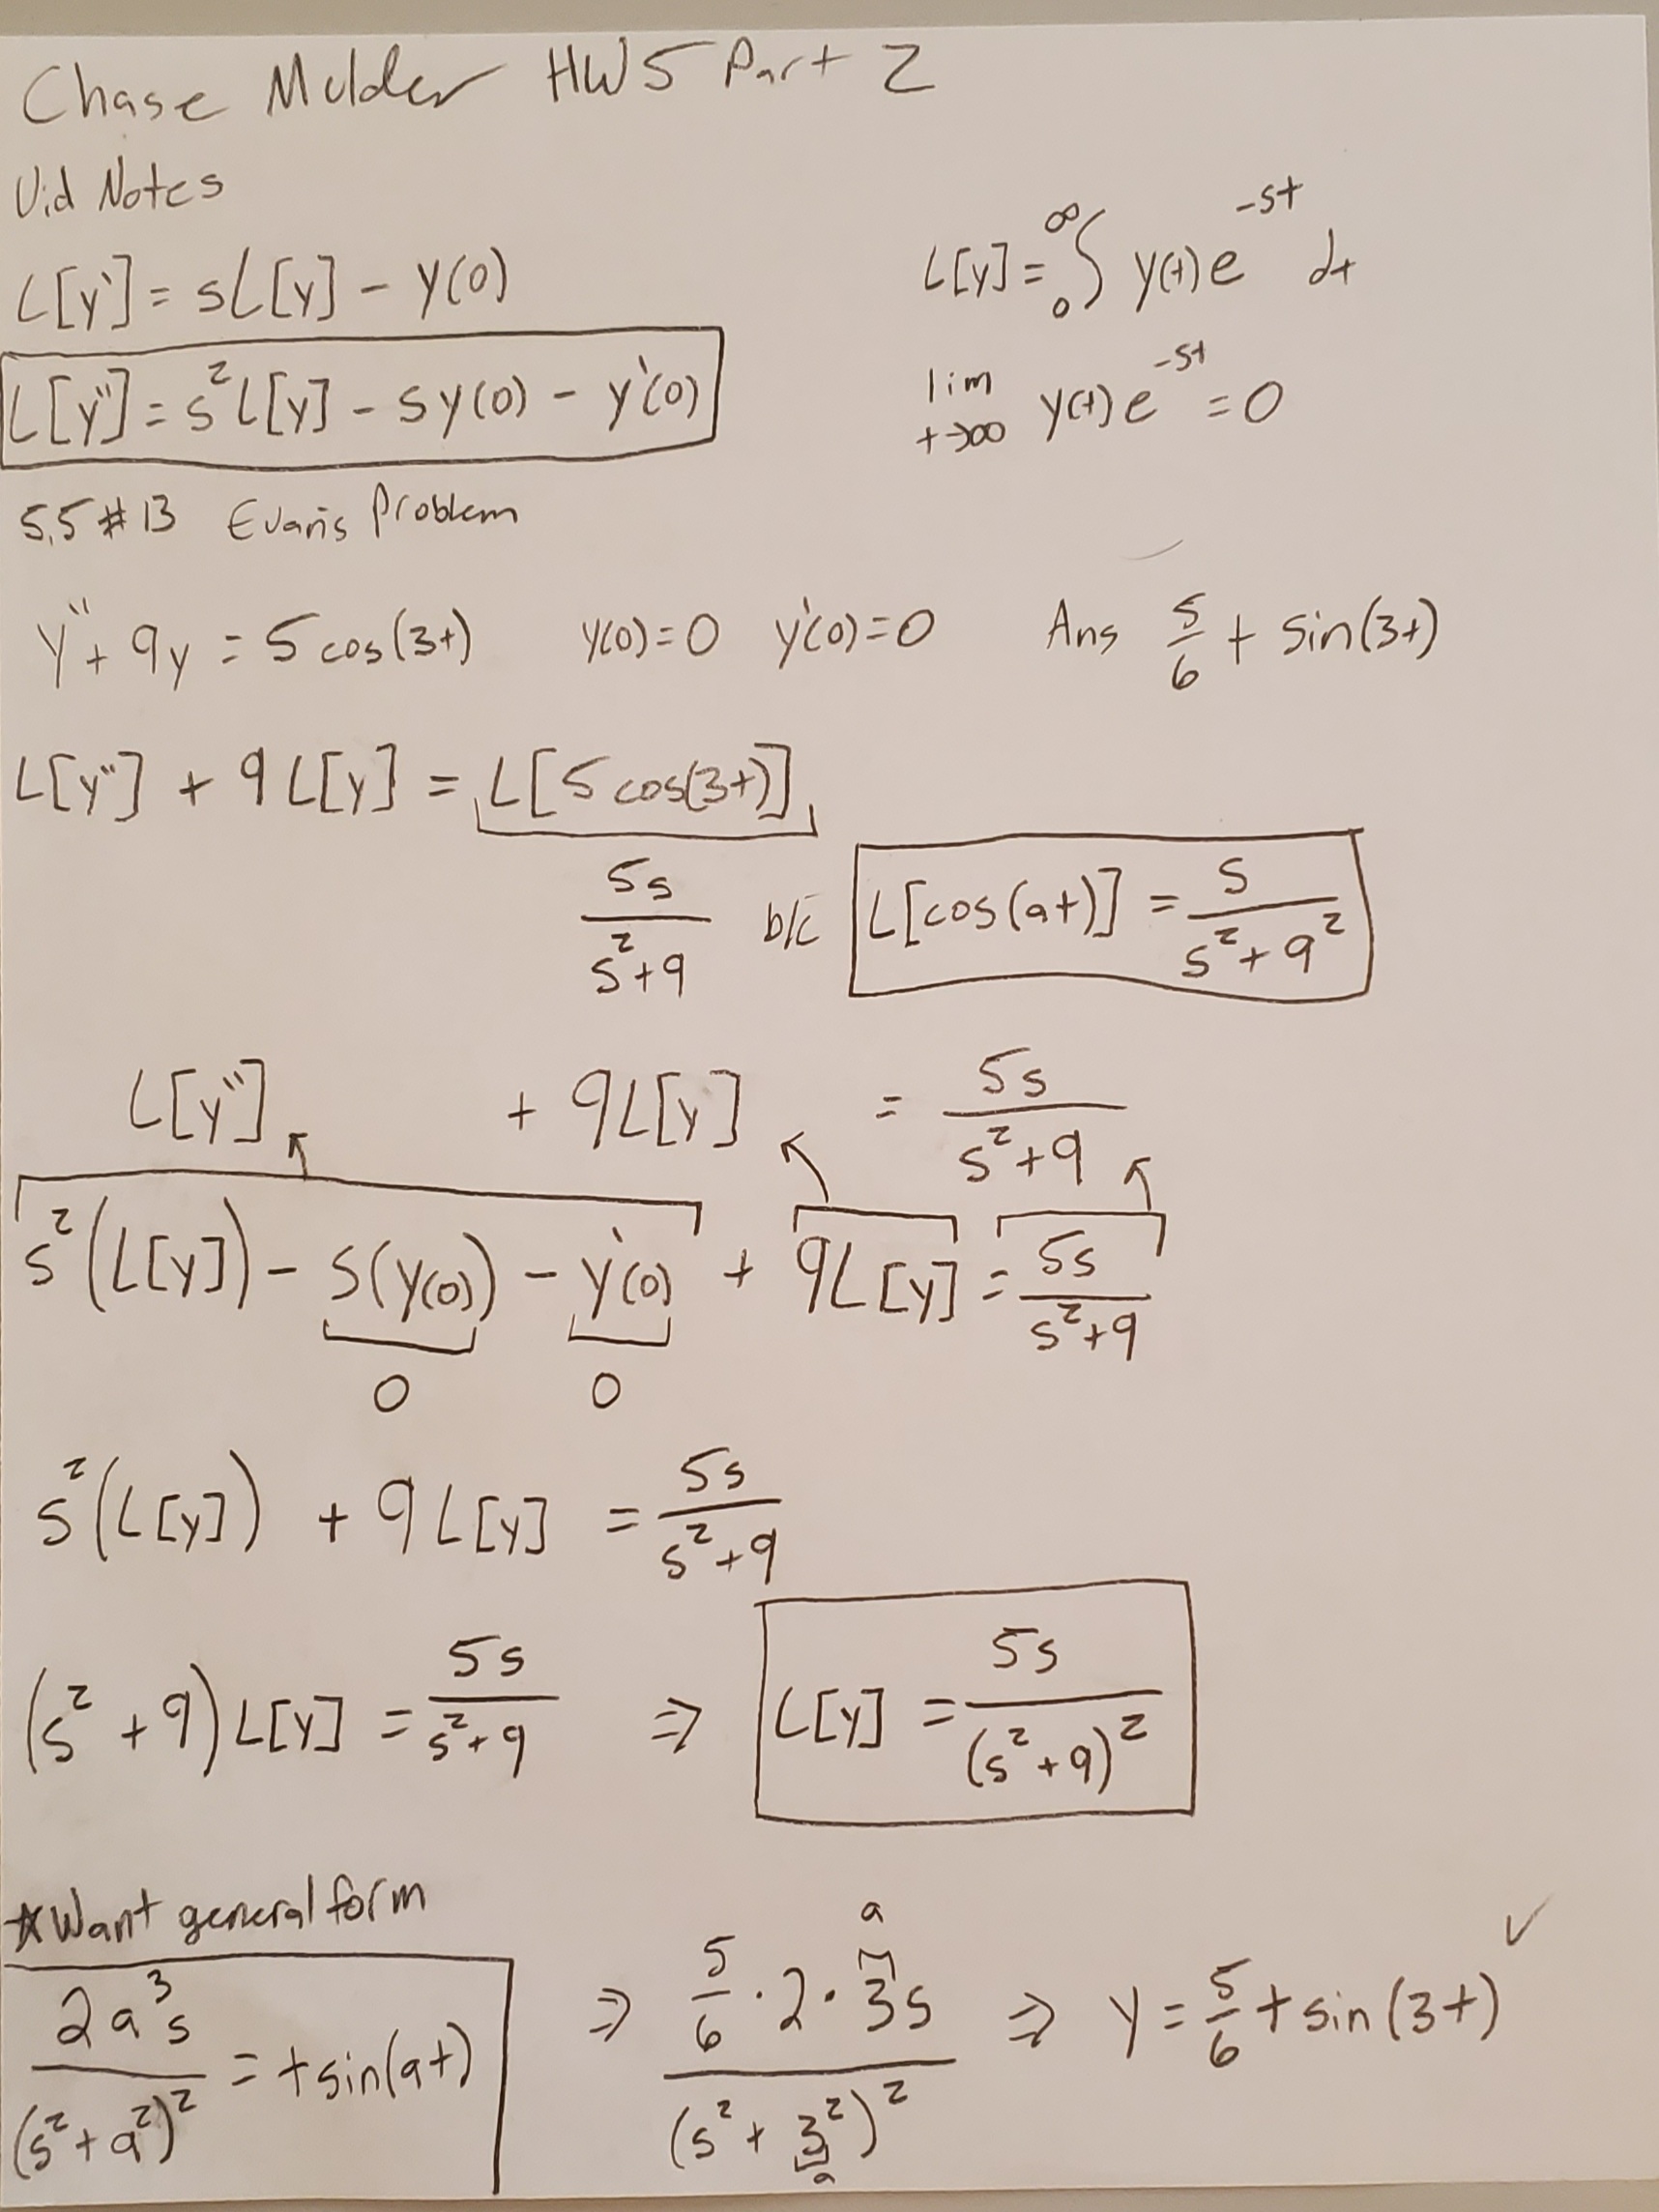 Chase Mulder HW5 Part 2
Vid Notes
L[y'] = sL[y] - y(0)
L[y] = ∫₀^∞ y(t)e^(-st) dt
L[y''] = s²L[y] - sy(0) - y'(0)
lim t→∞ y(t)e^(-st) = 0
5.5 #13 Evan's Problem
y'' + 9y = 5cos(3t) y(0)=0 y'(0)=0 Ans 5/6 t sin(3t)
L[y''] + 9L[y] = L[5cos(3t)]
5s/(s²+9) b/c L[cos(at)] = s/(s²+a²)
L[y''] + 9L[y] = 5s/(s²+9)
s²(L[y]) - s(y(0)) - y'(0) + 9L[y] = 5s/(s²+9)
0 0
s²(L[y]) + 9L[y] = 5s/(s²+9)
(s²+9)L[y] = 5s/(s²+9) ⇒ L[y] = 5s/(s²+9)²
*Want general form
2a³s/(s²+a²)² = t sin(at) ⇒ 5/6 · 2 · 3s/(s²+3²)² ⇒ y = 5/6 t sin(3t) ✓
a
a